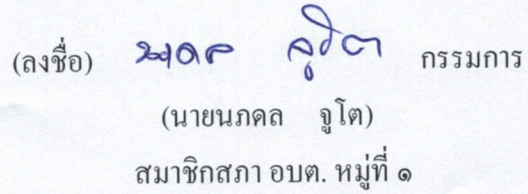 (ลงชื่อ) นภดล จูโต กรรมการ
(นายนภดล จูโต)
สมาชิกสภา อบต. หมู่ที่ ๑